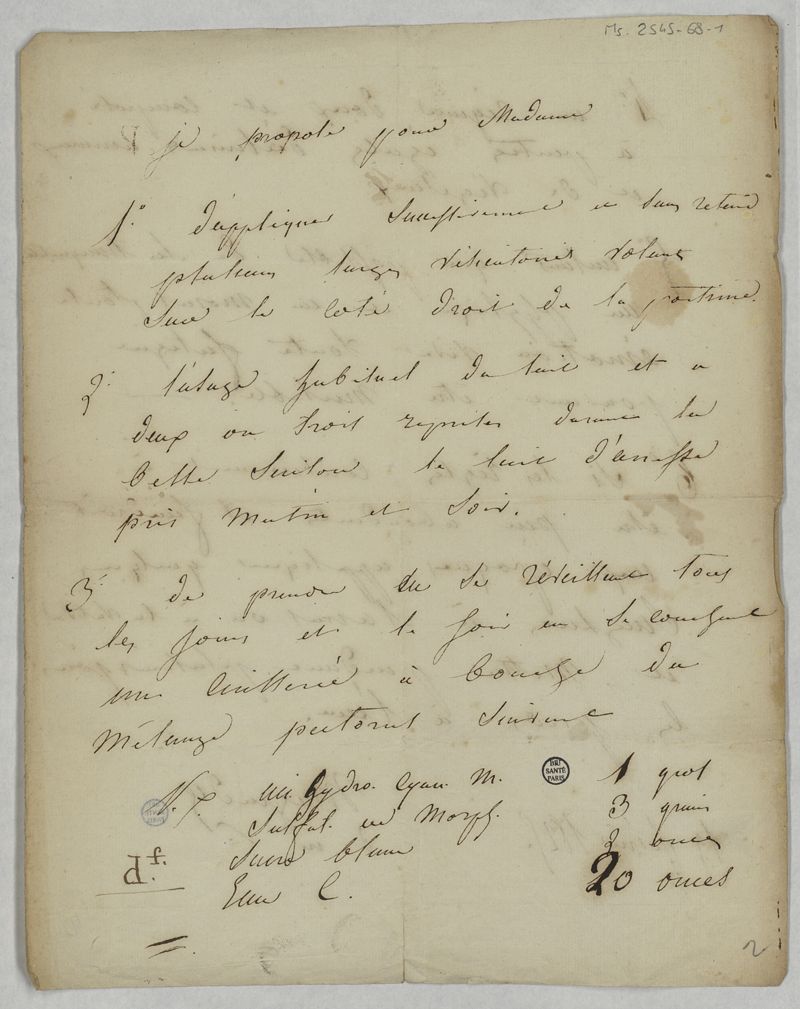 Ms. 2545-68-1
je propose pour Madame
1° d'appliquer successivement et sans retard
plusieurs larges vésicatoires volants
sur le coté droit de la poitrine.
2° l'usage habituel du lait et à
deux ou trois reprises durant la
belle saison le lait d'anesse
pris matin et soir.
3° de prendre en se réveillant tous
les jours et le soir en se couchant
une cuillerée à bouche du
mélange pectoral suivant
aci. hydro. cyan. M. 1 grot
Sulfat. de Morph. 3 grains
Sucre blanc 3 onces
Eau C. 20 onces
BIU
SANTÉ
PARIS
2